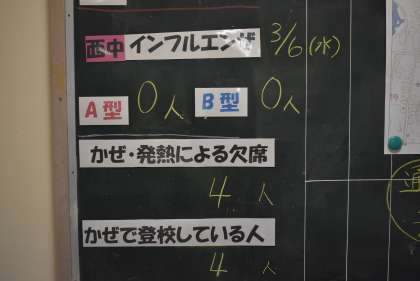 西中 インフルエンザ 3/6(水)
A型 0人 B型 0人
かぜ・発熱による欠席
4人
かぜで登校している人
4人